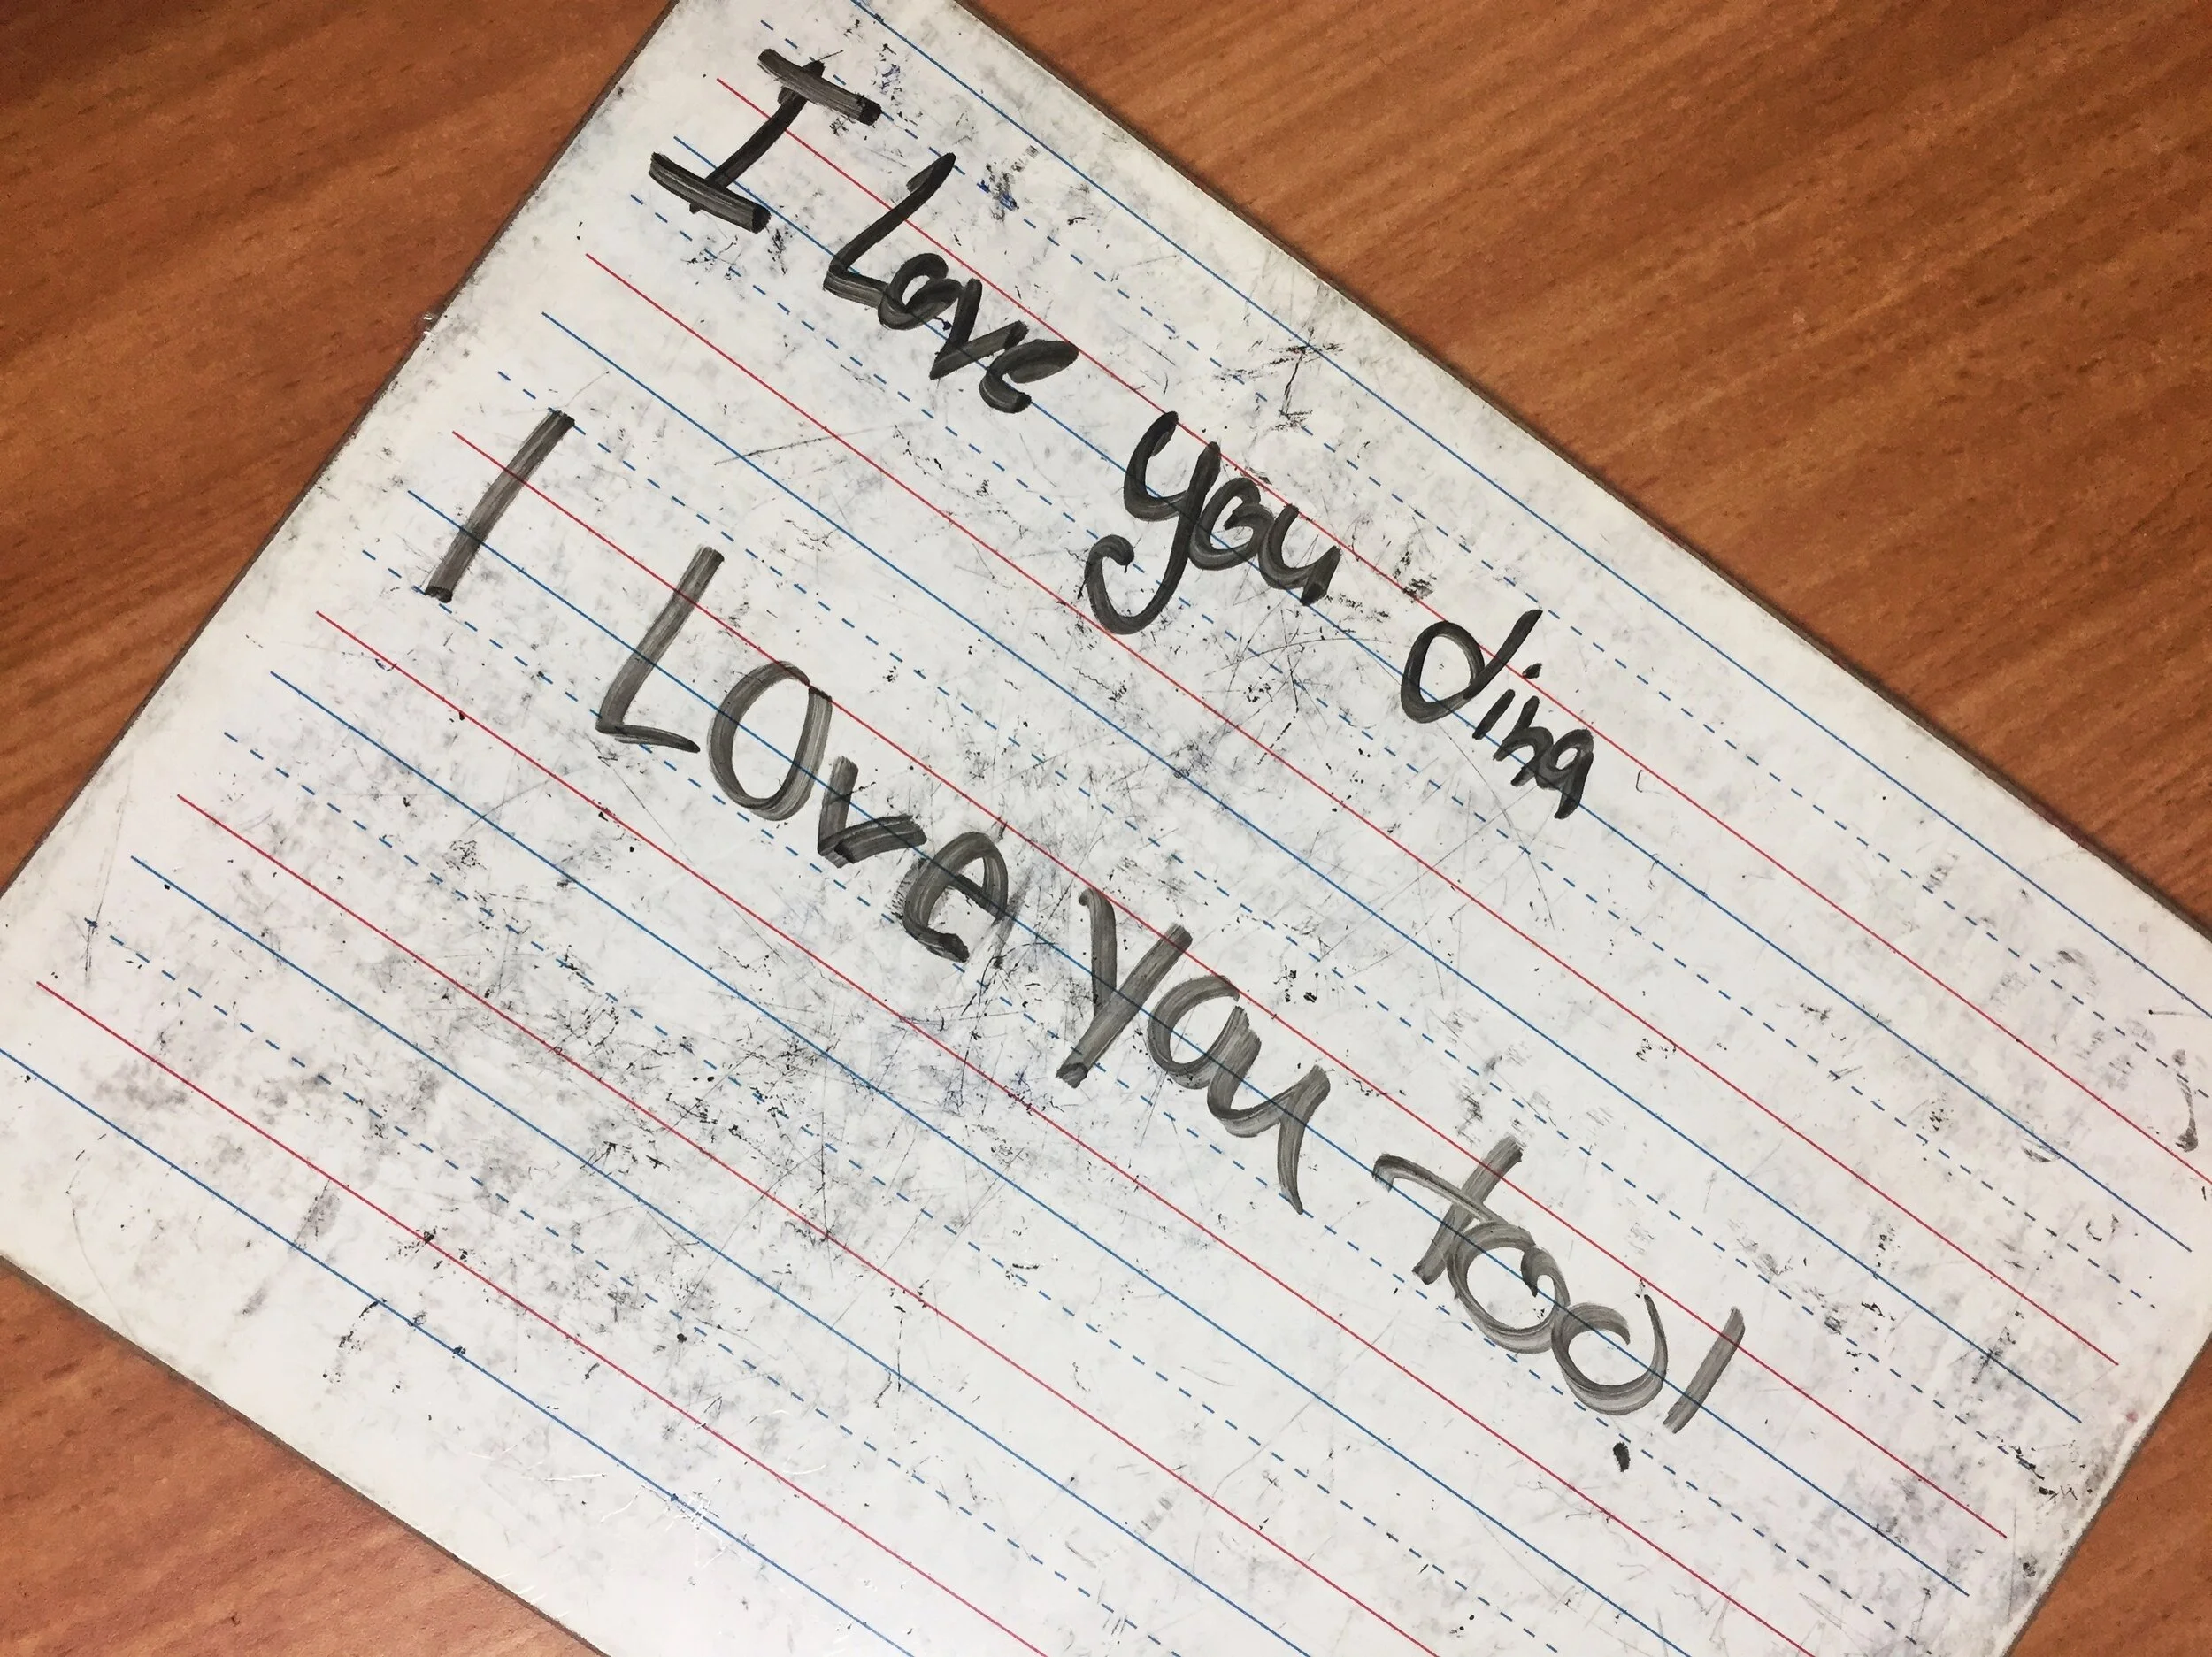 I Love you dina
I Love you too!